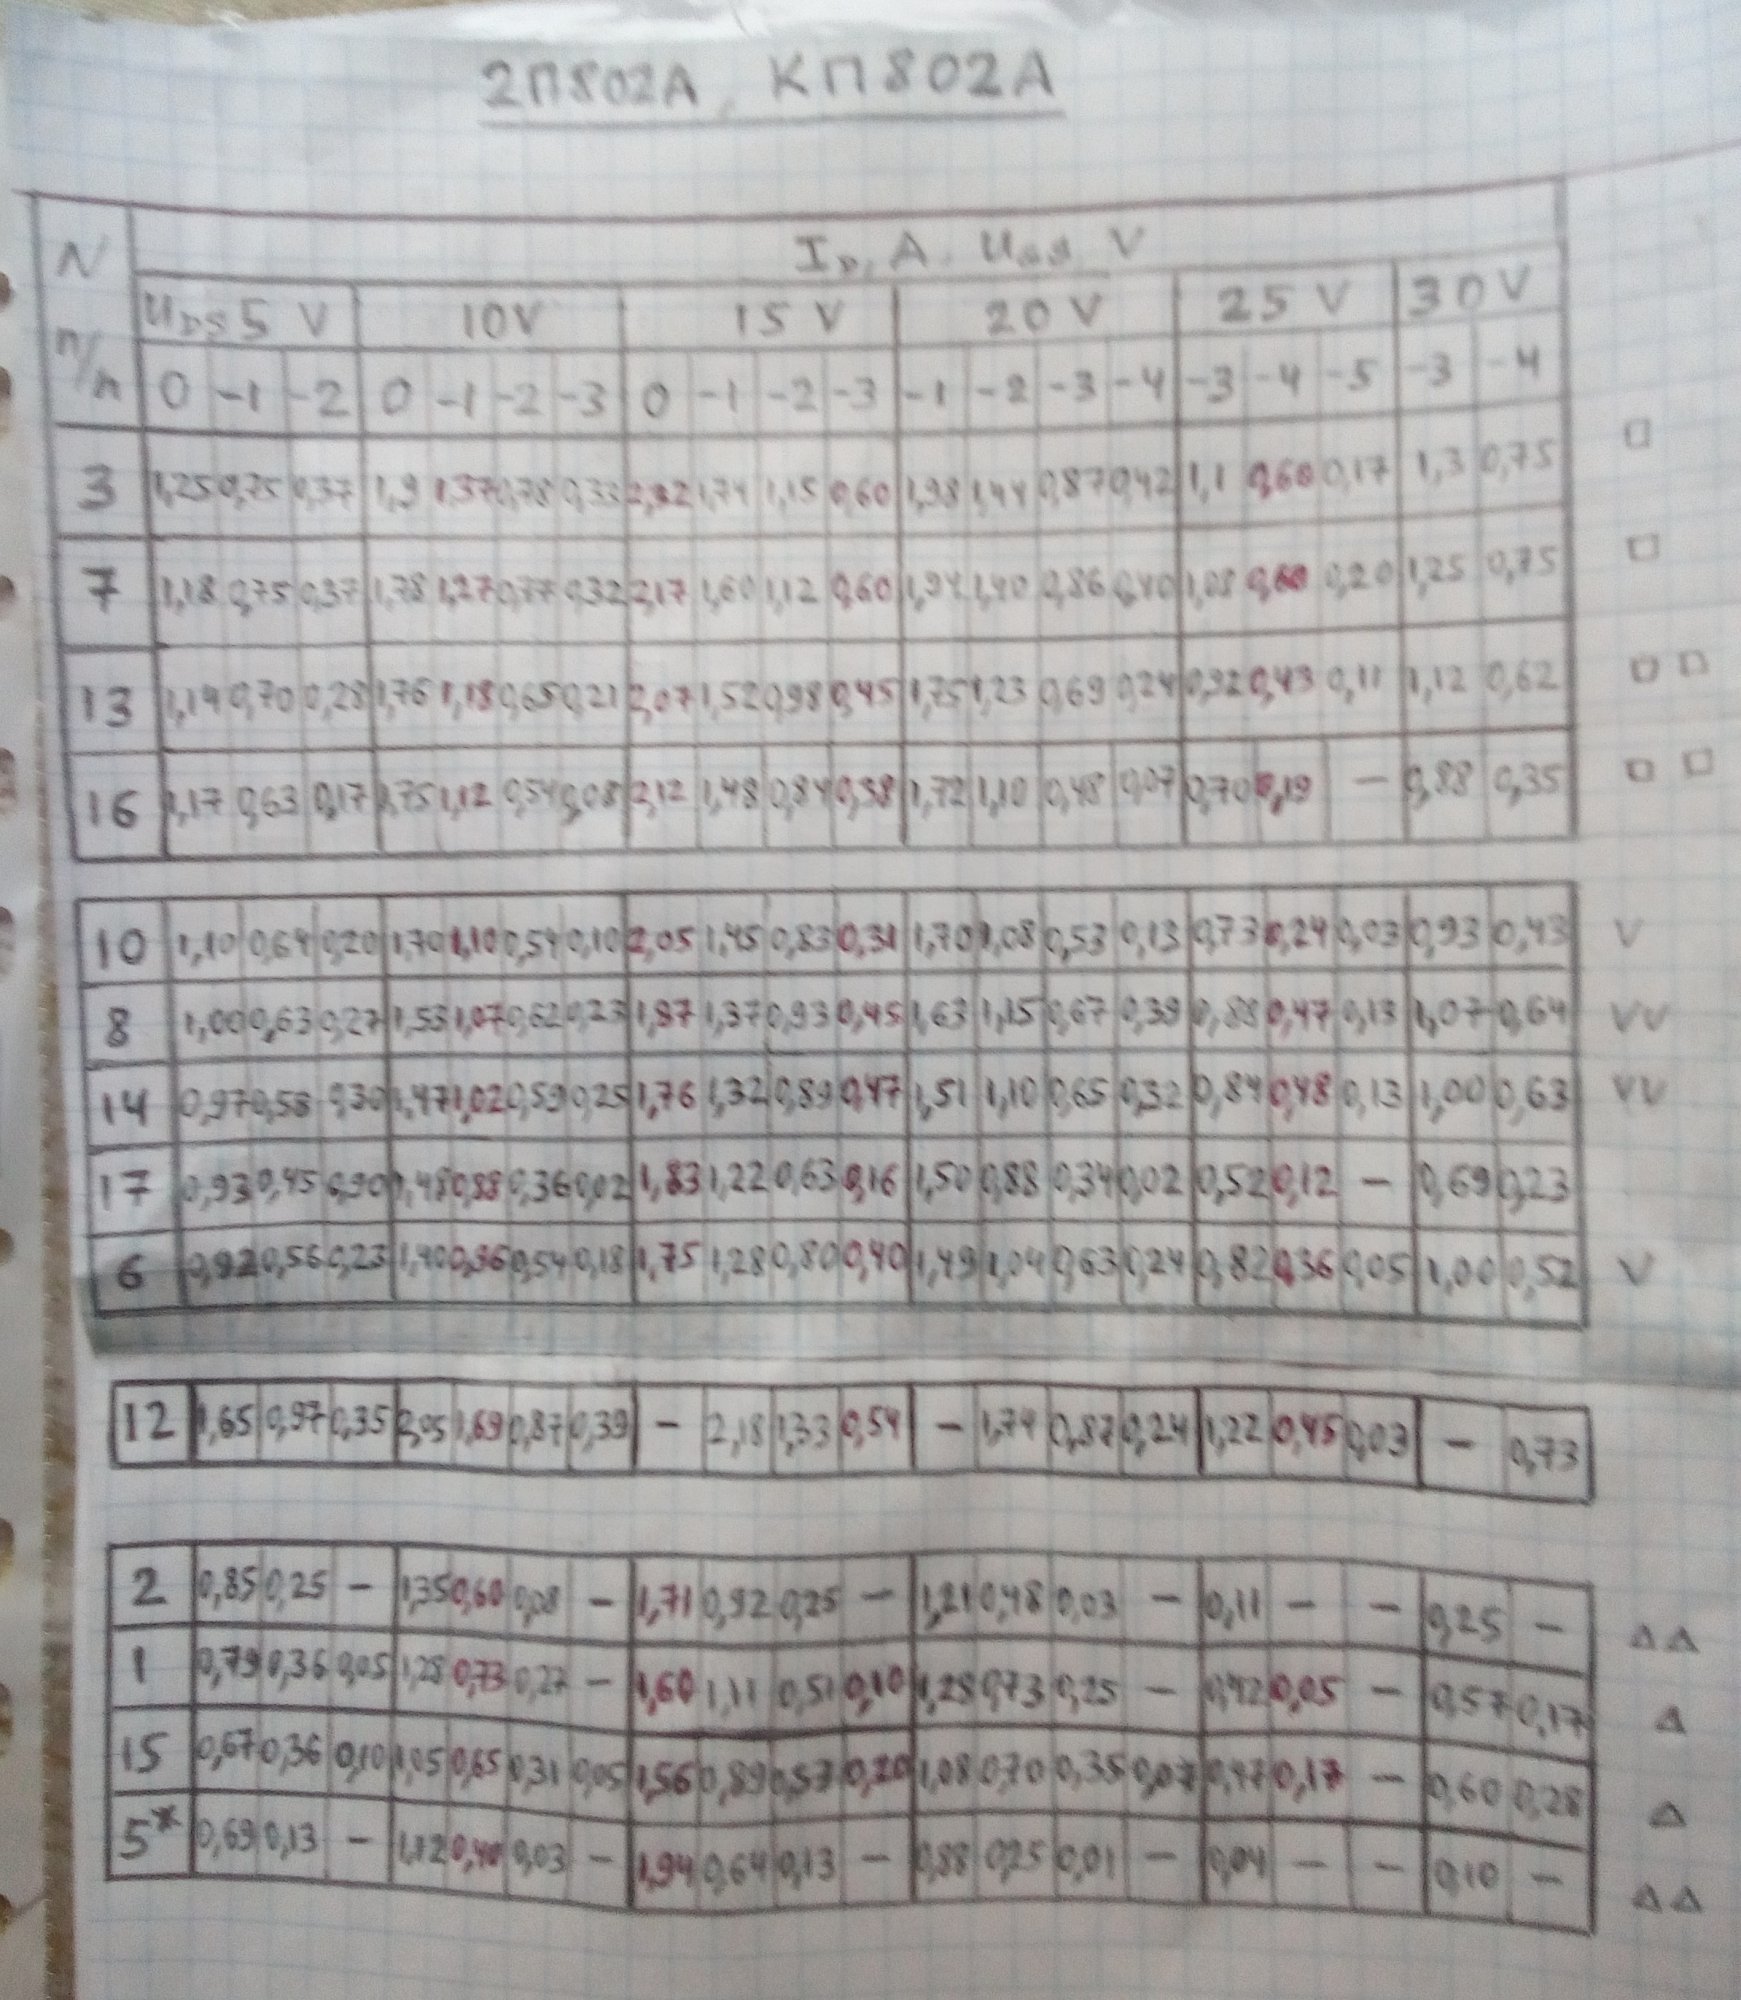 2П802А, КП802А
N п/п
I_D, A. U_GS, V
U_DS 5 V 10V 15 V 20 V 25 V 30 V
0 -1 -2 0 -1 -2 -3 0 -1 -2 -3 -1 -2 -3 -4 -3 -4 -5 -3 -4
3 1,25 0,75 0,37 1,9 1,37 0,78 0,33 2,32 1,74 1,15 0,60 1,98 1,44 0,87 0,42 1,1 0,60 0,17 1,3 0,75 □
7 1,18 0,75 0,37 1,78 1,27 0,77 0,32 2,17 1,60 1,12 0,60 1,94 1,40 0,86 0,40 1,08 0,60 0,20 1,25 0,75 □
13 1,14 0,70 0,28 1,76 1,18 0,65 0,21 2,07 1,52 0,98 0,45 1,75 1,23 0,69 0,24 0,92 0,43 0,11 1,12 0,62 □ □
16 1,17 0,63 0,17 1,75 1,12 0,54 0,08 2,12 1,48 0,84 0,38 1,72 1,10 0,48 0,07 0,70 0,19 – 0,88 0,35 □ □
10 1,10 0,64 0,20 1,70 1,10 0,54 0,10 2,05 1,45 0,83 0,31 1,70 1,08 0,53 0,13 0,73 0,24 0,03 0,93 0,43 V
8 1,00 0,63 0,27 1,53 1,07 0,62 0,23 1,87 1,37 0,93 0,45 1,63 1,15 0,67 0,39 0,88 0,47 0,13 1,07 0,64 VV
14 0,97 0,58 0,30 1,47 1,02 0,59 0,25 1,76 1,32 0,89 0,47 1,51 1,10 0,65 0,32 0,84 0,48 0,13 1,00 0,63 VV
17 0,93 0,45 0,90 1,48 0,88 0,36 0,02 1,83 1,22 0,63 0,16 1,50 0,88 0,34 0,02 0,52 0,12 – 0,69 0,23
6 0,92 0,56 0,23 1,40 0,96 0,54 0,18 1,75 1,28 0,80 0,40 1,49 1,04 0,63 0,24 0,82 0,36 0,05 1,00 0,52 V
12 1,65 0,97 0,35 2,05 1,69 0,87 0,39 – 2,18 1,33 0,54 – 1,74 0,87 0,24 1,22 0,45 0,03 – 0,73
2 0,85 0,25 – 1,35 0,60 0,08 – 1,71 0,92 0,25 – 1,21 0,48 0,03 – 0,11 – – 0,25 – ΔΔ
1 0,79 0,36 0,05 1,28 0,73 0,27 – 1,60 1,11 0,51 0,10 1,28 0,73 0,25 – 0,42 0,05 – 0,57 0,17 Δ
15 0,67 0,36 0,10 1,05 0,65 0,31 0,05 1,56 0,89 0,57 0,20 1,08 0,70 0,35 0,07 0,47 0,17 – 0,60 0,28 Δ
5* 0,69 0,13 – 1,12 0,40 0,03 – 1,94 0,64 0,13 – 0,88 0,25 0,01 – 0,04 – – 0,10 – ΔΔ